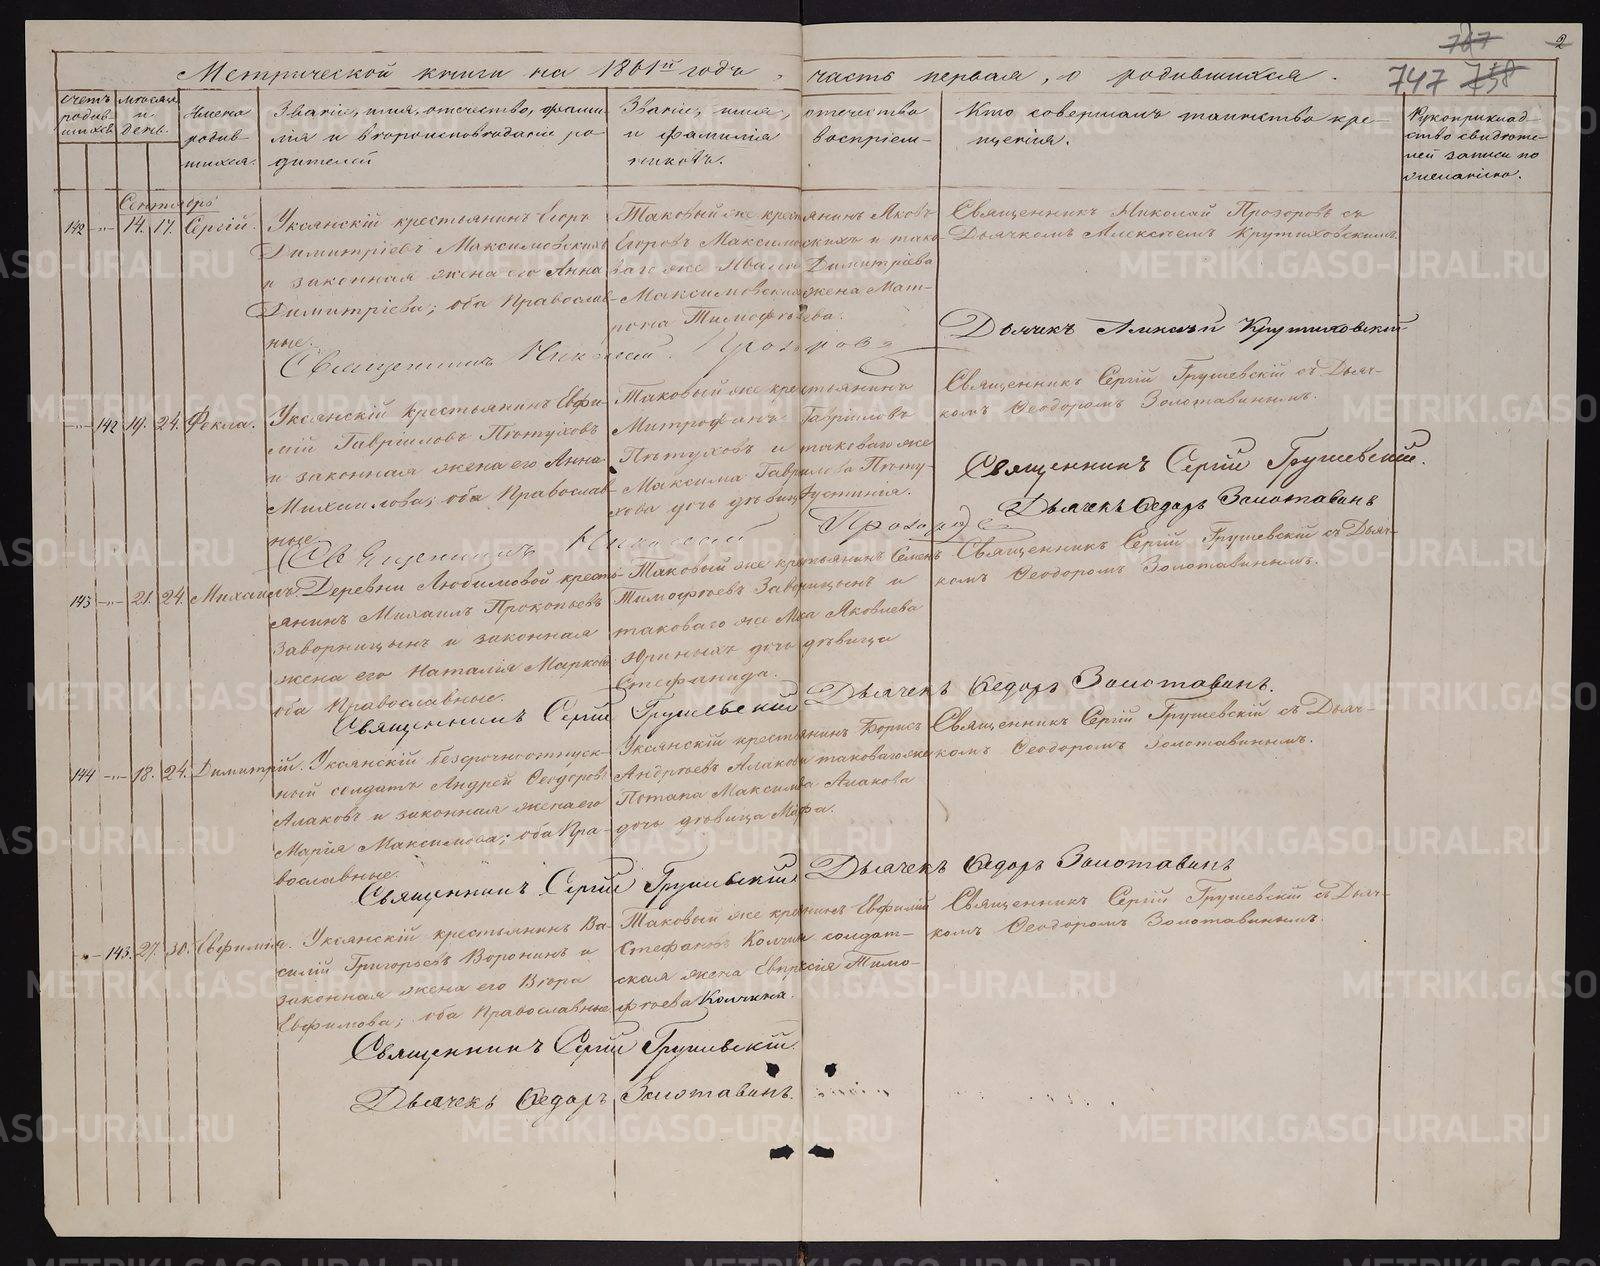 767
2
Метрической книги на 1861й годъ, часть первая, о родившихся.
747 758
Счетъ родив-шихся.
Мѣсяцъ и день.
Имена родив-шихся.
Званіе, имя, отечество, фами-
лія и вѣроисповѣданіе ро-
дителей
Званіе, имя, отечество
и фамилія воспріем-
никовъ.
Кто совершалъ таинство кре-
щенія.
Рукоприклад-
ство свидѣте-
лей записи по
желанію.
Сентябрь
142 -„- 14. 17. Сергій.
Уксянскій крестьянинъ Егоръ
Димитріевъ Максимовскихъ
и законная жена его Анна
Димитріева; оба Православ-
ные.
Таковый же крестьянинъ Яковъ
Егоровъ Максимовскихъ и тако-
ваго же Ивана Димитріева
Максимовскихъ жена Мат-
рона Тимофѣева.
Священникъ Николай Прозоровъ съ
Дьячкомъ Алексѣемъ Крутиховскимъ.
Дьячекъ Алексѣй Крутиховскій
Священникъ Николай Прозоровъ
-„- 142 19. 24. Фекла.
Уксянскій крестьянинъ Евфи-
мій Гавріиловъ Пѣтуховъ
и законная жена его Анна
Михаилова; оба Православ-
ные.
Таковый же крестьянинъ
Митрофанъ Гавріиловъ
Пѣтуховъ и таковаго же
Максима Гаврилова Пѣту-
хова дочь дѣвица Устинія.
Священникъ Сергій Грушевскій съ Дьяч-
комъ Ѳеодоромъ Золотавинымъ.
Священникъ Сергій Грушевскій.
Дьячекъ Ѳедоръ Золотавинъ
Священникъ Николай Прозоровъ
143 -„- 21. 24. Михаилъ.
Деревни Любимовой кресть-
янинъ Михаилъ Прокопьевъ
Заворницынъ и законная
жена его Наталія Маркова
оба Православные.
Таковый же крестьянинъ Семенъ
Тимофѣевъ Заворницынъ и
таковаго же Яковлева
Юриныхъ дочь дѣвица
Стефанида.
Священникъ Сергій Грушевскій съ Дьяч-
комъ Ѳеодоромъ Золотавинымъ.
Священникъ Сергій Грушевскій Дьячекъ Ѳедоръ Золотавинъ.
144 -„- 18. 24. Димитрій.
Уксянскій безсрочноотпуск-
ный солдатъ Андрей Ѳеодоровъ
Алаковъ и законная жена его
Марія Максимова; оба Пра-
вославные.
Уксянскій крестьянинъ Борисъ
Андрѣевъ Алаковъ и таковаго же
Потапа Максимова Алакова
дочь дѣвица Марфа.
Священникъ Сергій Грушевскій съ Дьяч-
комъ Ѳеодоромъ Золотавинымъ.
Священникъ Сергій Грушевскій Дьячекъ Ѳедоръ Золотавинъ
-„- 143. 27. 30. Евфимія.
Уксянскій крестьянинъ Ва-
силій Григорьевъ Воронинъ и
законная жена его Вѣра
Евфимова; оба Православные
Таковый же кренинъ Евфимій
Стефановъ Колчинъ солдат-
ская жена Евпрасія Тимо-
фѣева Колчина.
Священникъ Сергій Грушевскій съ Дьяч-
комъ Ѳеодоромъ Золотавинымъ.
Священникъ Сергій Грушевскій.
Дьячекъ Ѳедоръ Золотавинъ.
METRIKI.GASO-URAL.RU